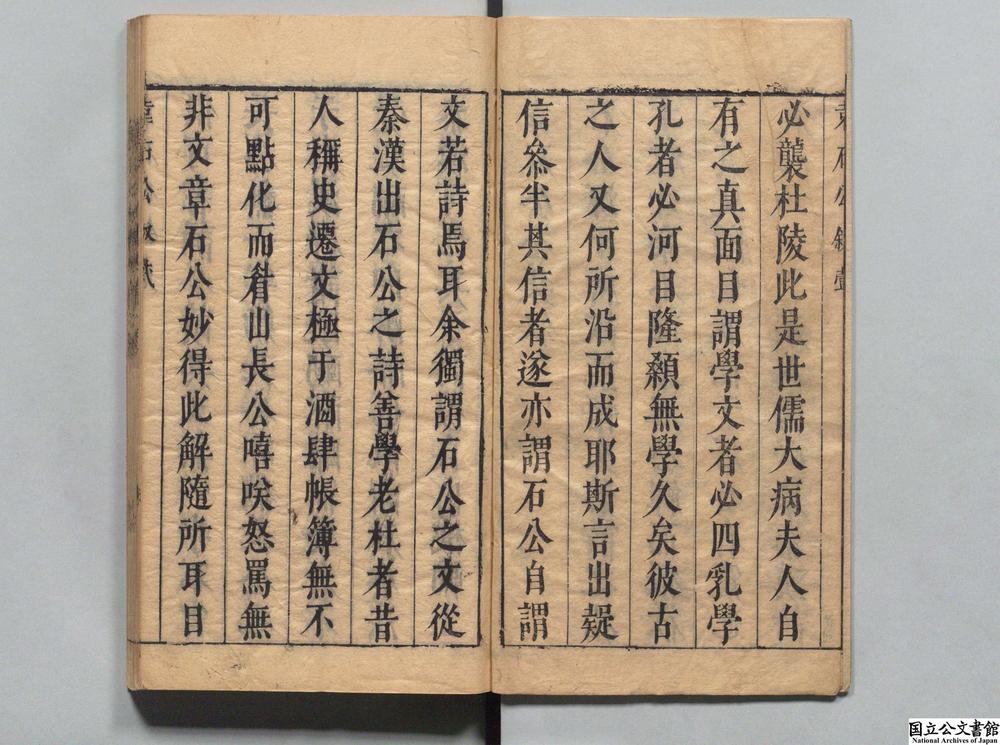 必襲杜陵此是世儒大病夫人自
有之真面目謂學文者必四乳學
孔者必河目隆顙無學久矣彼古
之人又何所沿而成耶斯言出疑
信叅半其信者遂亦謂石公自謂
文若詩焉耳余獨謂石公之文從
秦漢出石公之詩善學老杜者昔
人稱史遷文極于酒肆帳簿無不
可點化而眉山長公嘻咲怒罵無
非文章石公妙得此解隨所耳目
国立公文書館
National Archives of Japan